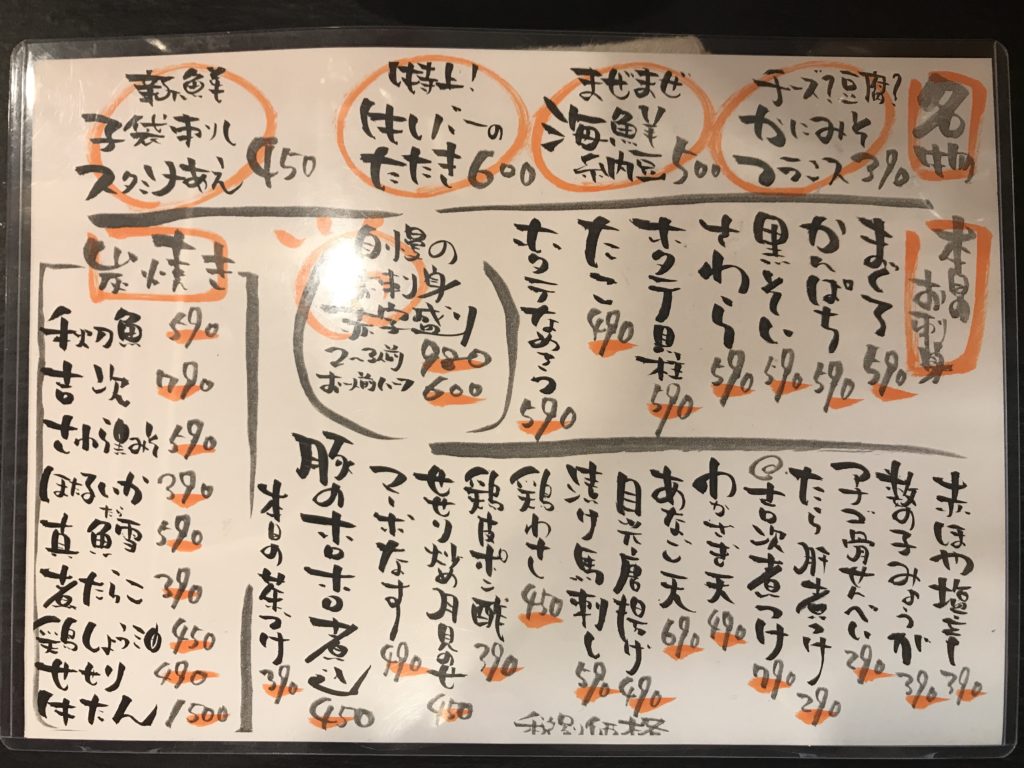 名物
チーズ?豆腐?
かにみそ
フランス 390
まぜまぜ
海鮮
納豆 500
特上!
はらみの
たたき 600
新鮮
子袋刺し
スタミナあえ 450
本日の
お刺身
まぐろ 590
かんぱち 590
黒そい 590
さわら 590
ホタテ貝柱 590
たこ 490
ホタテなめろう 590
自慢の
お刺身
盛り
2~3人前 980
お一人前ハーフ 600
炭焼き
秋刀魚 590
吉次 790
さわら西京みそ 590
ほたるいか 390
真だ鱈 590
煮たらこ 390
鶏しょう油 450
せせり 490
はたん 1500
赤ほや塩辛 390
数の子みょうが 390
アナゴ骨せんべい 290
たら肝煮つけ 290
@吉次煮つけ 790
わかさぎ天 490
あなご天 690
目光唐揚げ 490
漬け馬刺し 590
鶏わさ 450
鶏皮ポン酢 390
せせり炒め月見のせ 450
マーボなす 490
豚のホロホロ煮込 450
本日の茶づけ 390
税別価格